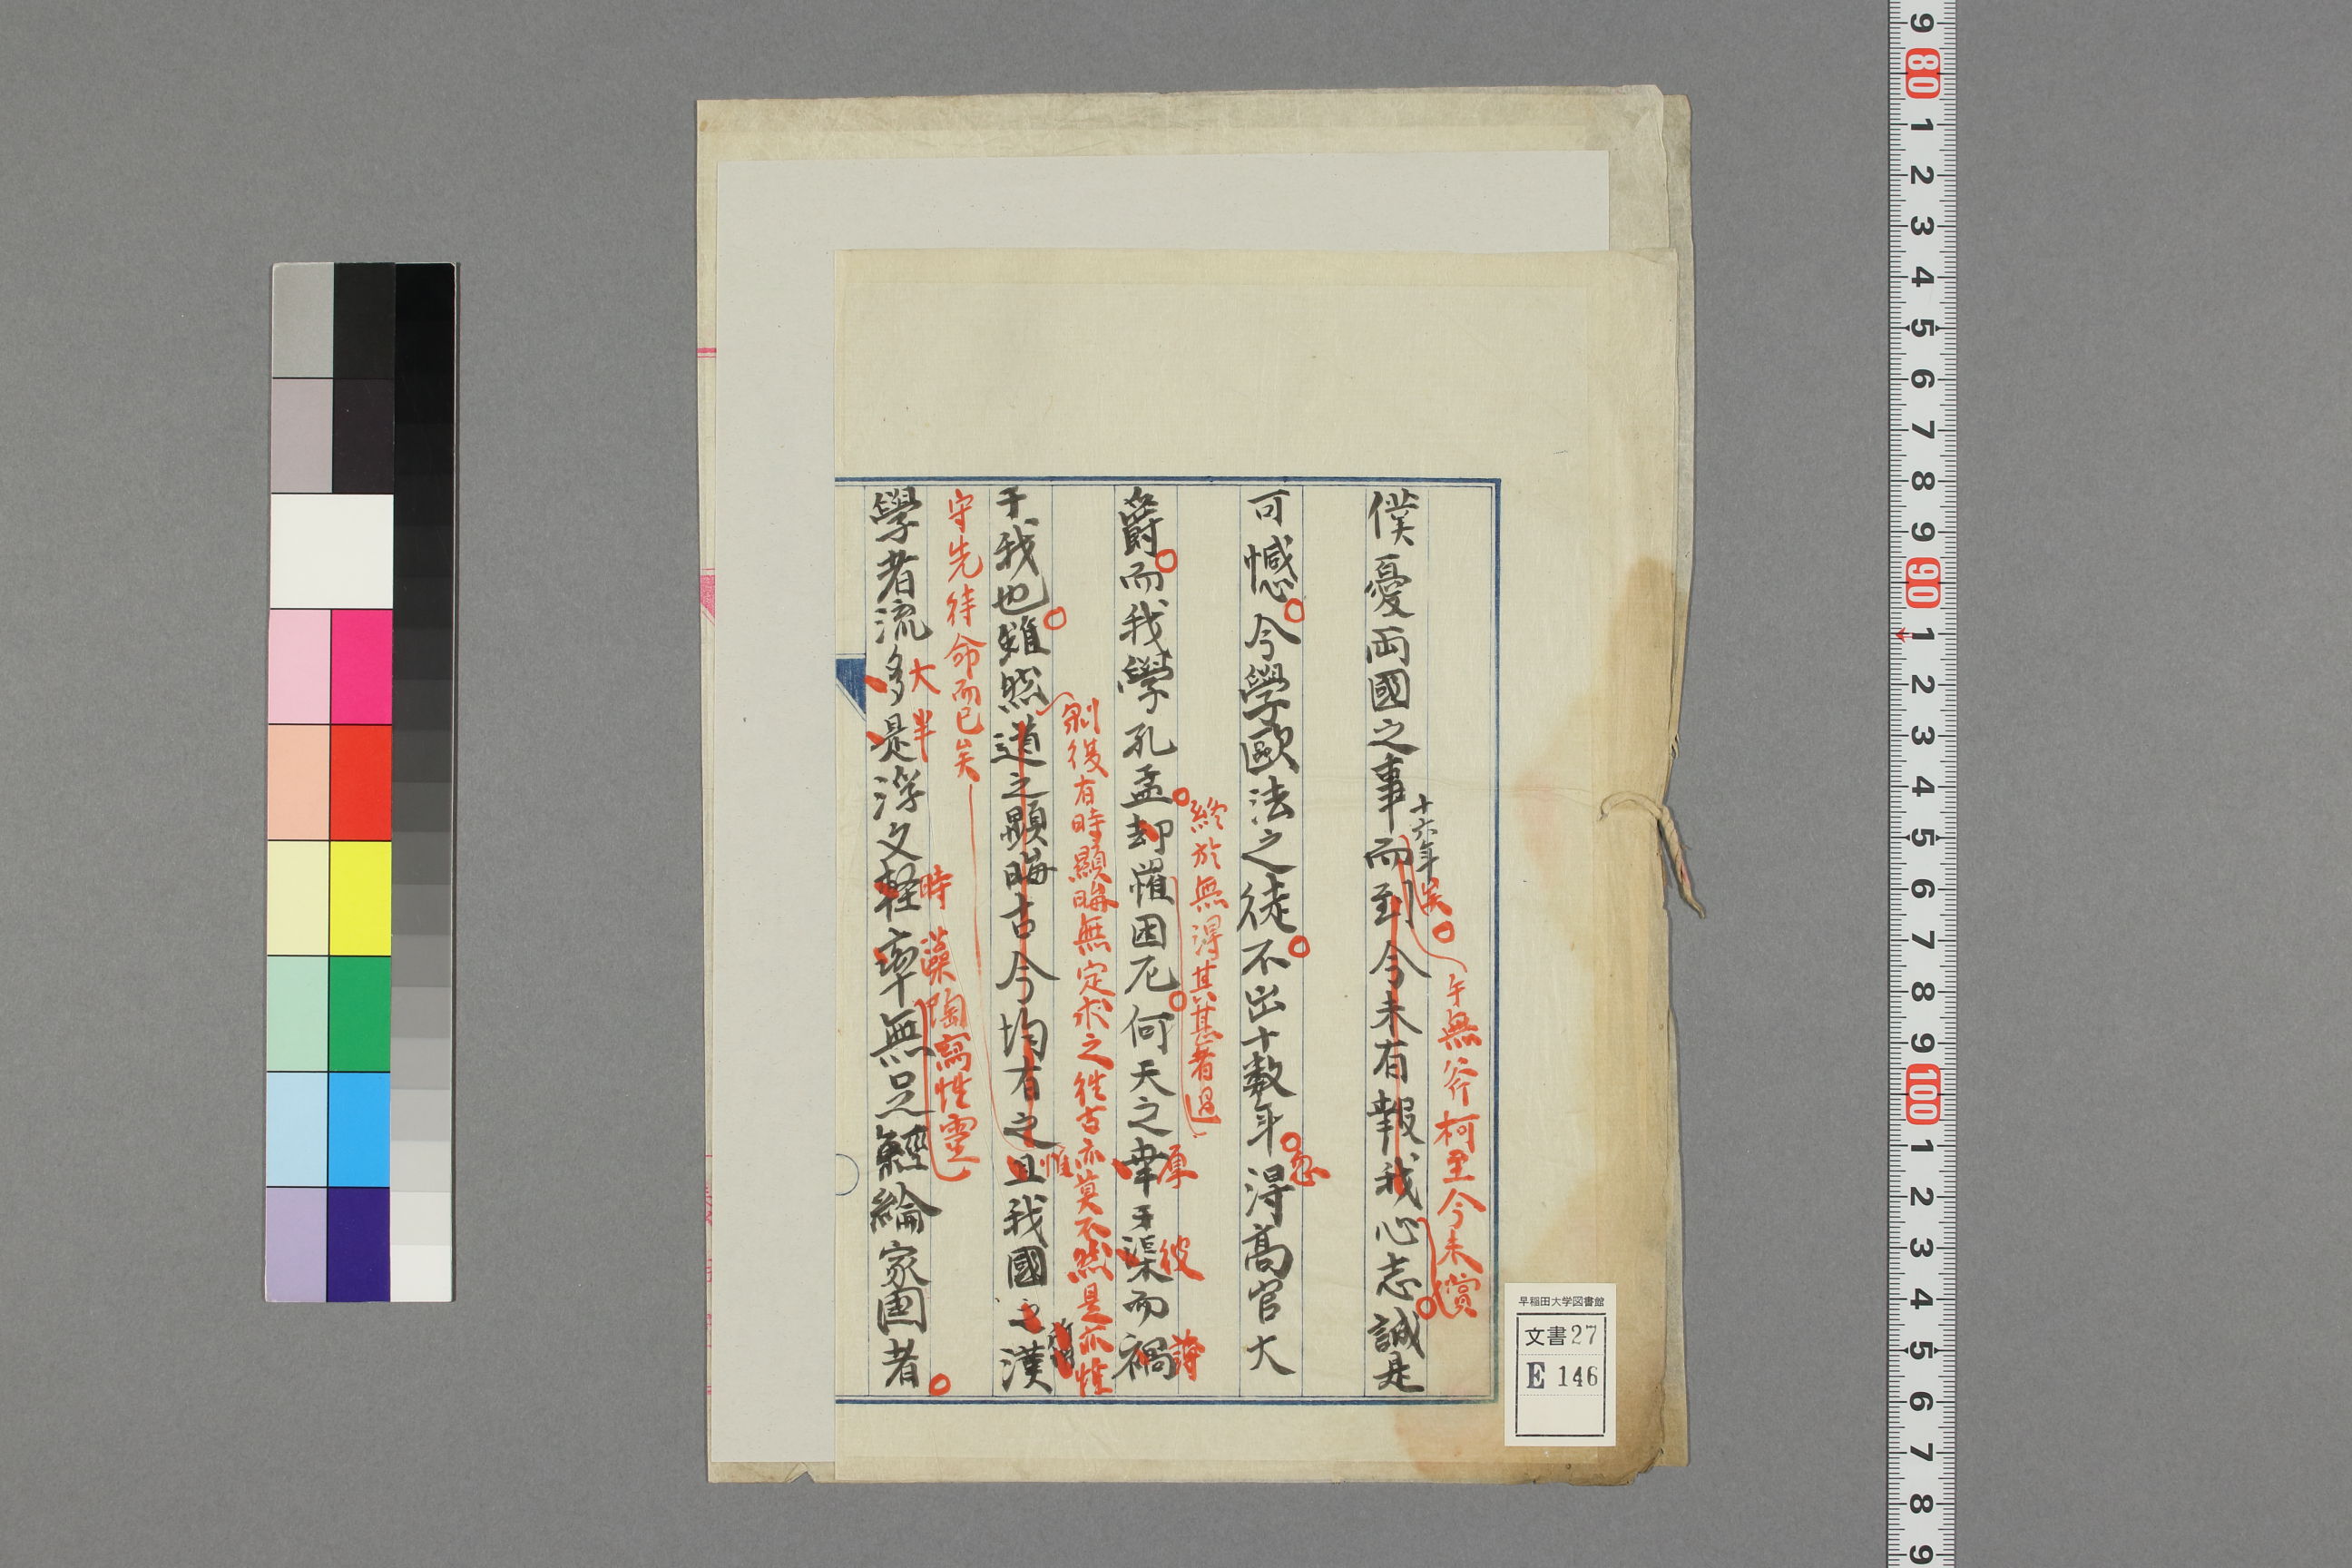 僕憂両國之事而到今未有報我心志誠是
十六年矣
手無斧柯至今未償
可憾今學歐法之徒不出十數年得高官大
忽
爵而我學孔孟却罹困厄何天之幸于渠而禍
終於無得其甚者過
厚
彼
于我也雖然道之顯晦古今均有之且我國之漢
剥復有時顯晦無定求之往古亦莫不然是亦惟
守先待命而已矣
惟
所謂
學者流多是浮文輕率無足經綸家國者
大半
時
藻陶寫性靈
早稲田大学図書館
文書27
E 146
9 80 1 2 3 4 5 6 7 8 9 90 1 2 3 4 5 6 7 8 9 100 1 2 3 4 5 6 7 8 9